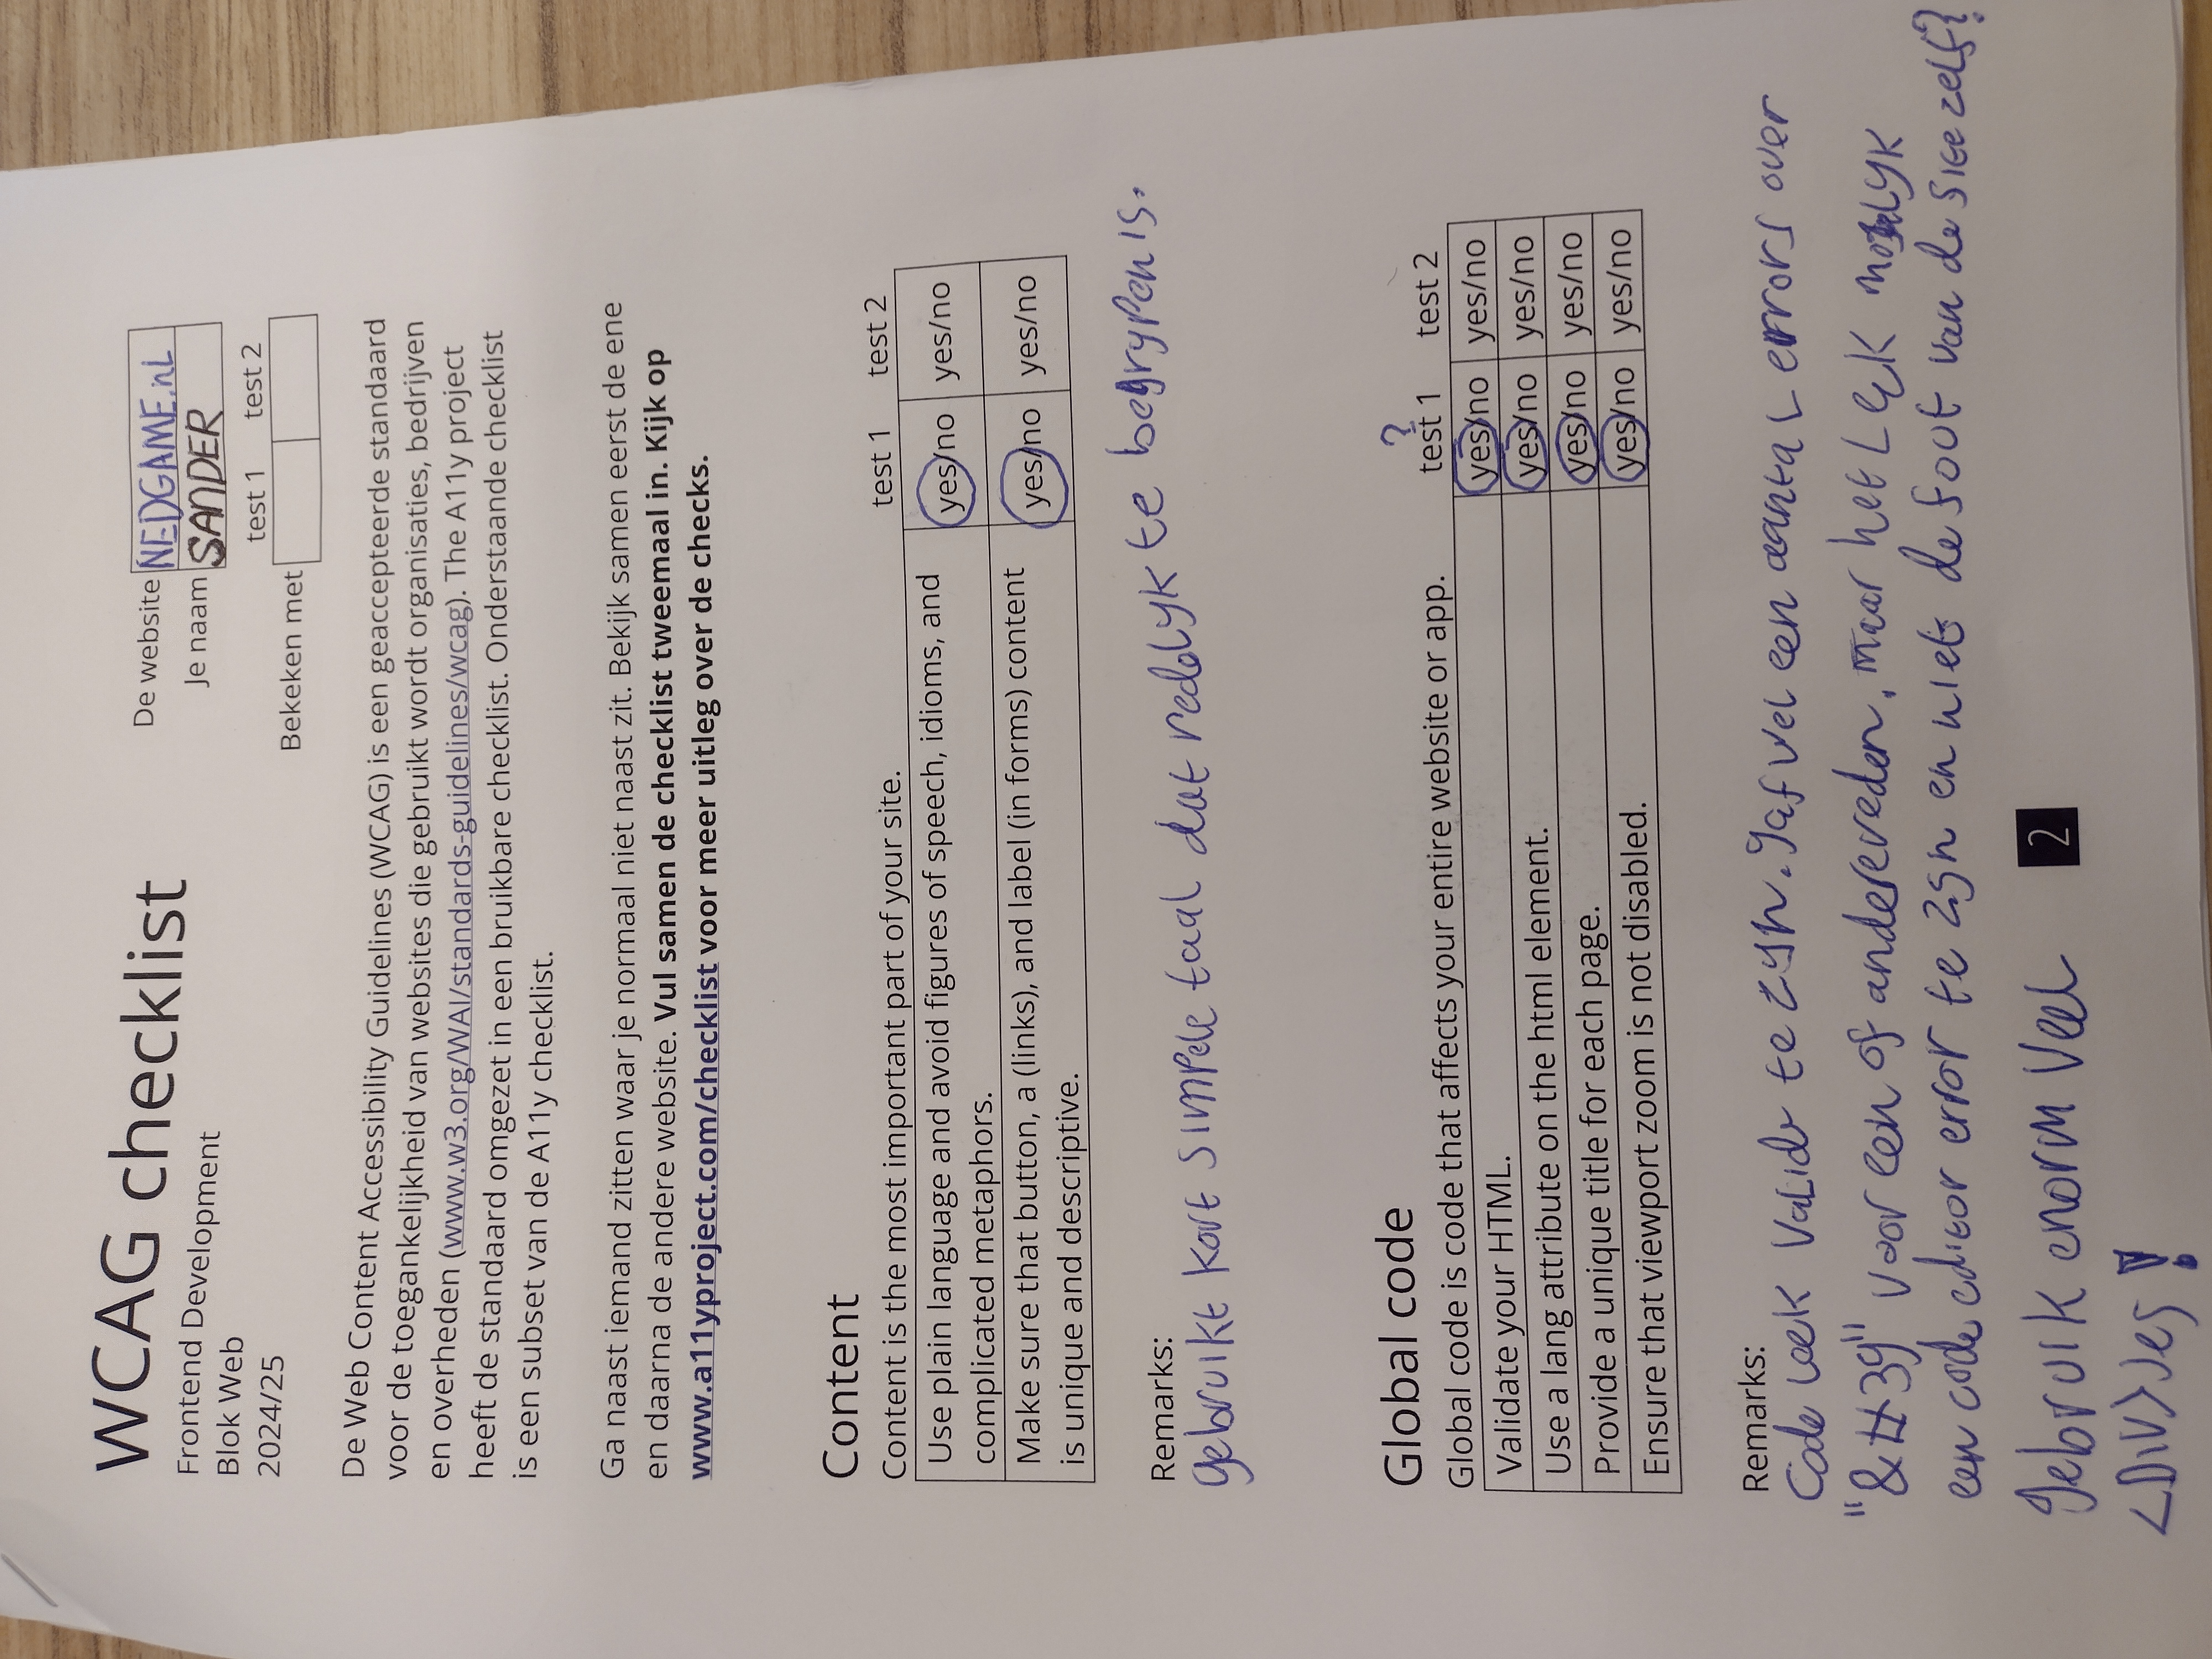 WCAG checklist
Frontend Development
Blok Web
2024/25
De website NEDGAME.nL
Je naam SANDER
test 1 test 2
Bekeken met
De Web Content Accessibility Guidelines (WCAG) is een geaccepteerde standaard
voor de toegankelijkheid van websites die gebruikt wordt organisaties, bedrijven
en overheden (www.w3.org/WAI/standards-guidelines/wcag). The A11y project
heeft de standaard omgezet in een bruikbare checklist. Onderstaande checklist
is een subset van de A11y checklist.
Ga naast iemand zitten waar je normaal niet naast zit. Bekijk samen eerst de ene
en daarna de andere website. Vul samen de checklist tweemaal in. Kijk op
www.a11yproject.com/checklist voor meer uitleg over de checks.
Content
Content is the most important part of your site. test 1 test 2
Use plain language and avoid figures of speech, idioms, and yes/no yes/no
complicated metaphors.
Make sure that button, a (links), and label (in forms) content yes/no yes/no
is unique and descriptive.
Remarks:
gebruikt kort simpele taal dat redelyk te begrypen is.
Global code
?
Global code is code that affects your entire website or app. test 1 test 2
Validate your HTML. yes/no yes/no
Use a lang attribute on the html element. yes/no yes/no
Provide a unique title for each page. yes/no yes/no
Ensure that viewport zoom is not disabled. yes/no yes/no
Remarks:
Code leek valide te zyn. gaf wel een aantal errors over
"&#39" voor een of andere reden, maar het leek
een code editor error te zyn en niet de fout van de site zelf?
gebruik enorm veel
<DIV>jes!
2